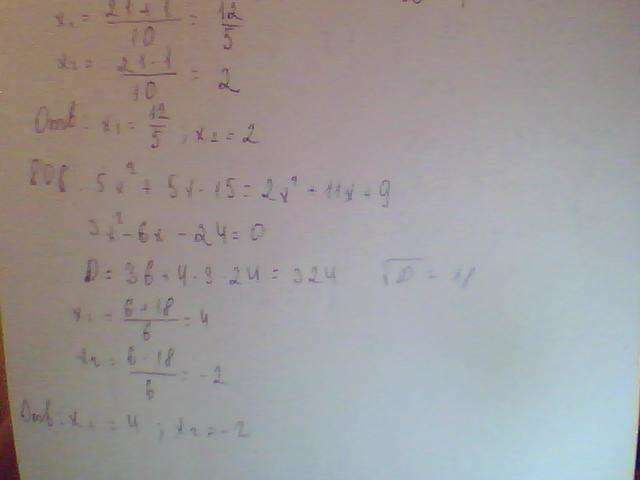 x₁ = (21 + 1)/10 = 12/5
x₂ = (21 - 1)/10 = 2
Отв: x₁ = 12/5 ; x₂ = 2
5x² + 5x - 15 = 2x² + 11x + 9
3x² - 6x - 24 = 0
D = 36 + 4 · 3 · 24 = 324 √D = 18
x₁ = (6 + 18)/6 = 4
x₂ = (6 - 18)/6 = -2
Отв: x₁ = 4 ; x₂ = -2